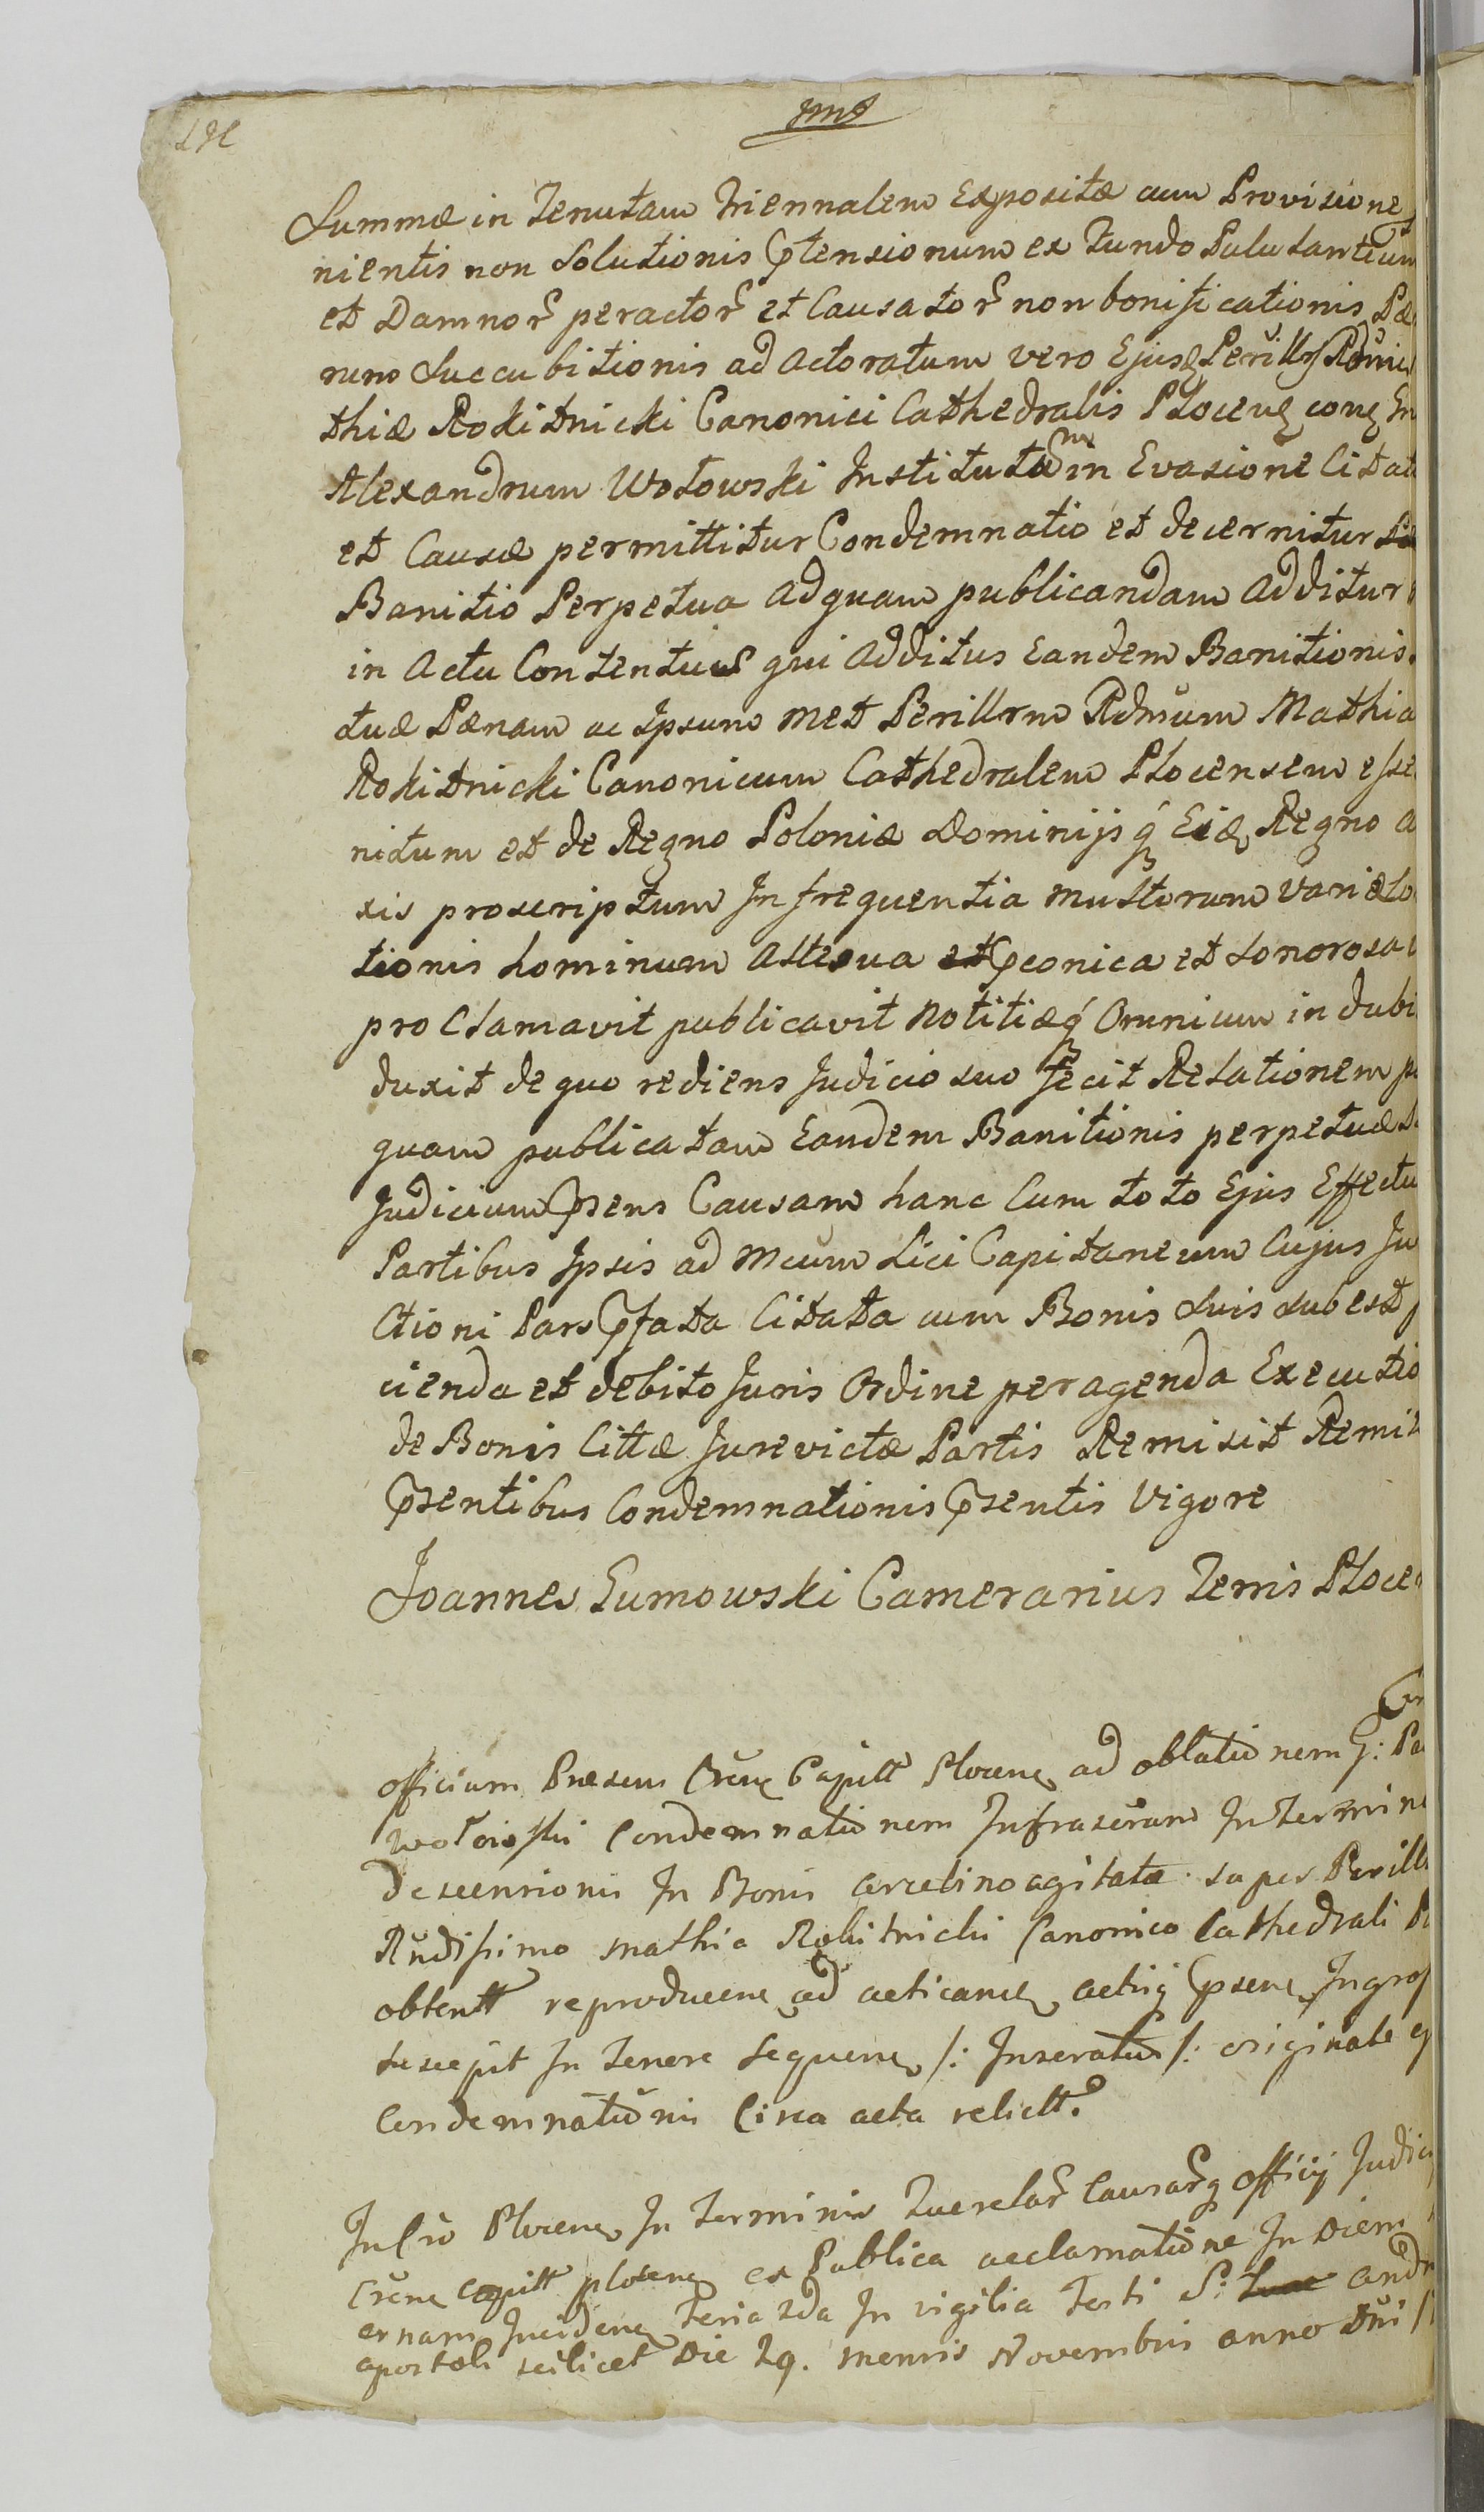 Summæ in Tenutam Triennalem Expositæ cum Provisione
nientis non Solutionis Prtensionum ex Fundo Palutantium
et Damnor peractor et Causator non bonificationis Pæ
num Succubitionis ad Actoratum vero Ejusq Perillrs Rdmi
thiæ Rokitnicki Canonici Cathedralis Plocens conq
Alexandrum Wołowski Institutam in Evasione Citat
et Causæ permittitur Condemnatio et decernitur
Banitio Perpetua ad quam publicandam additur
in Actu Contentus qui additus Eandem Banitionis
tuæ Pænam ac Ipsum met Perillrm Rdmum Mathia
Rokitnicki Canonicum Cathedralem Plocensem esse
nitum et de Regno Poloniæ Dominijsq Eiq Regno a
xis proscriptum In frequentia multorum variæ
tionis hominum Altesua et Pconica et Sonorosa
proclamavit publicavit Notitiæq Omnium in dubi
duxit de quo rediens Judicio suo fecit Relationem p
quam publicatam Eandem Banitionis perpetuæ
Judicium Psens Causam hanc Cum toto Ejus Effectu
Partibus Ipsis ad Mcum Lici Capitaneum Cujus Ju
ctioni Pars Pfata Citata cum Bonis Suis Subest
cienda et debito Juris Ordine peragenda Executio
de Bonis Cittæ Jurevictæ Partis Remisit Remit
Psentibus Condemnationis Psentis Vigore
Joannes Sumowski Camerarius Terris Ploce
officium Præsens Crene Capitt Plocene ad oblationem G: Pa
Wołowski Condemnationem Infrascram In Termino
descensionis In Bonis Arcelino agitatæ super Perill
Rndissimo Mathia Rokitnicki Canonico Cathedrali
obtentt reproducene ad acticand actisq Psene Ingros
suscepit In Tenore Sequene /: Inseratur /: originale
Condemnationis Circa acta relictt.
In Cro Plocene In Terminis Querelar Causarq officij Judici
Crene capitt plocene ex Publica acclamatione In Diem
ernam Incidene Feria 2da In vigilia Festi S: andr
apostoli scilicet Die 29. mensis Novembris anno Dni